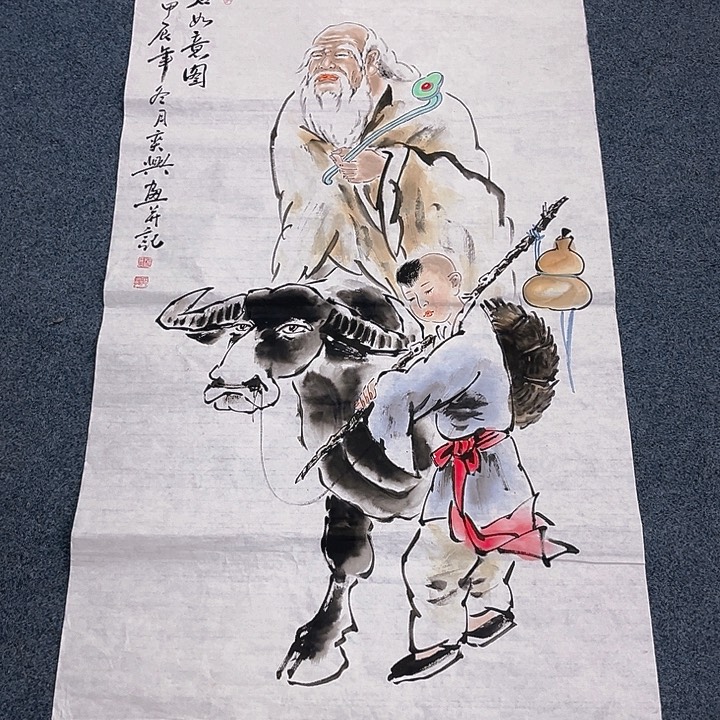 如意圖
甲辰年冬月奕興畫并記